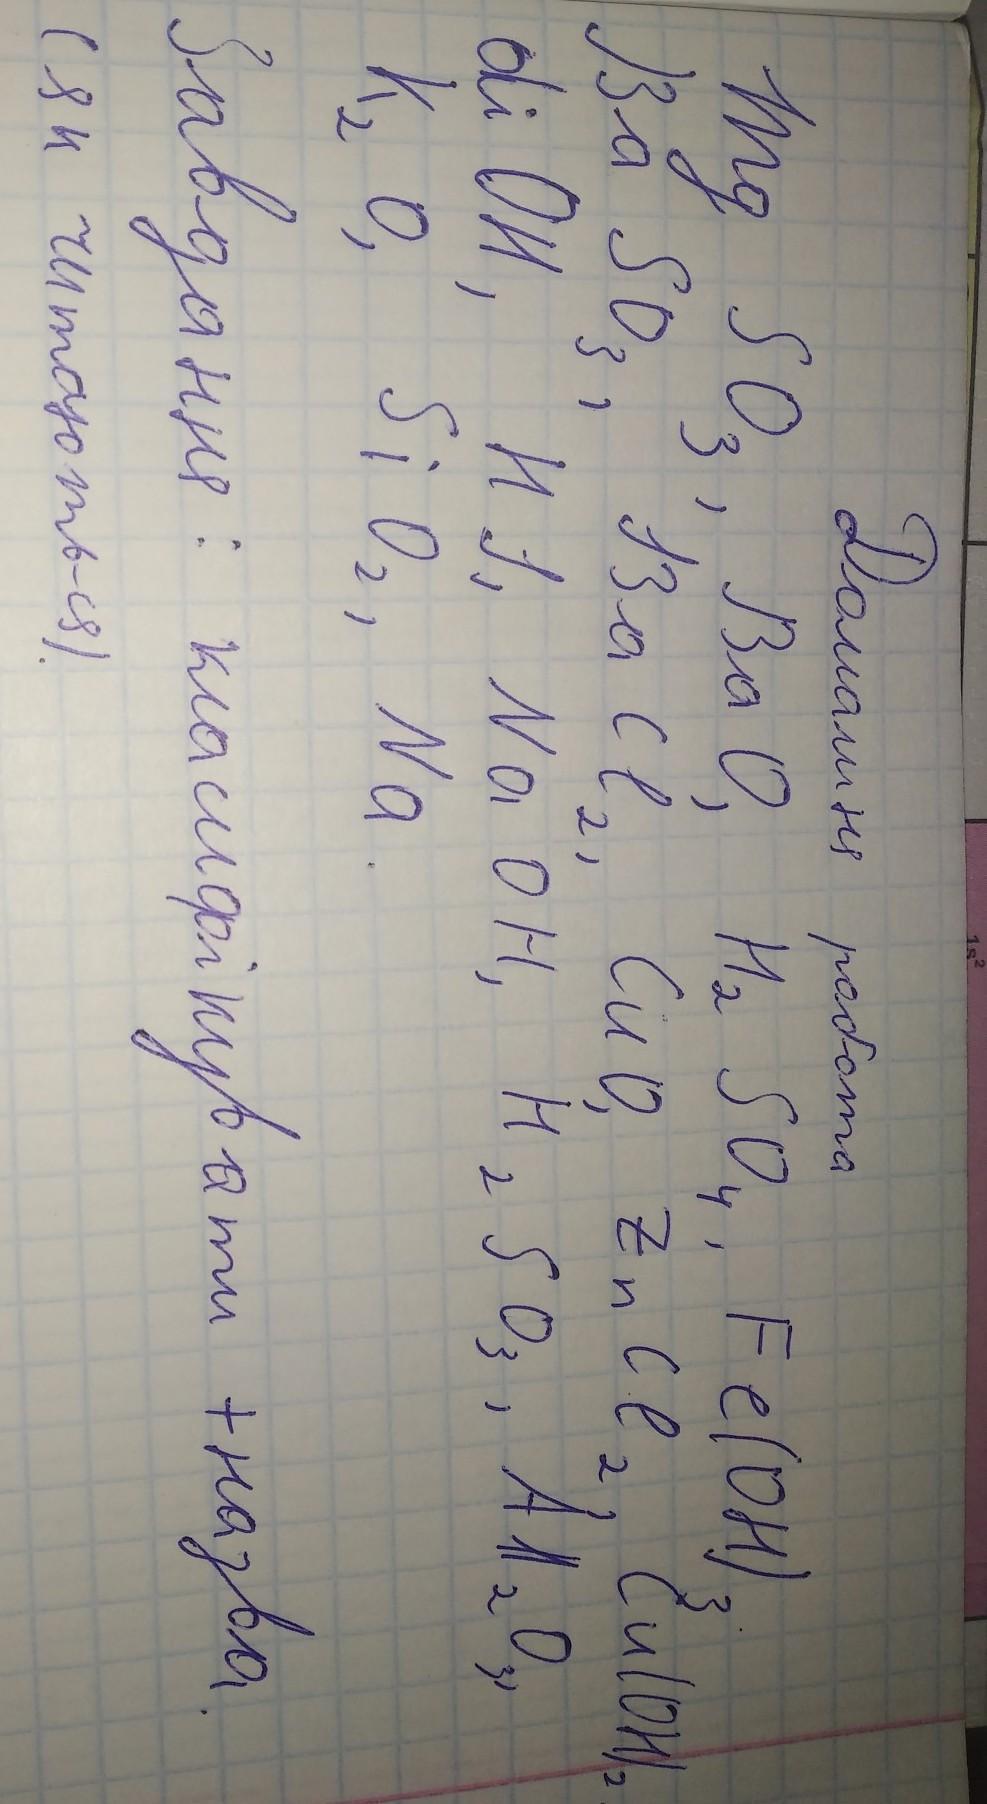 Домашня робота
Mg SO3, BaO, H2 SO4, Fe(OH)3.
Ba SO3, Ba Cl2, CuO, Zn Cl2, Cu(OH)2
Li OH, H J, Na OH, H2 SO3, Al2O3,
K2 O, Si O2, Na.
Завдання: класифікувати + назва.
(як читають-ся).
1s2